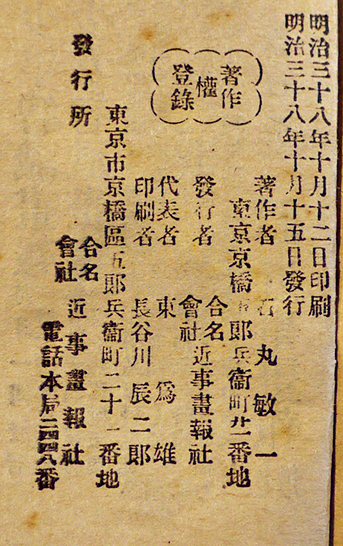 明治三十八年十月十二日印刷
明治三十八年十月十五日發行
著作
權
登錄
著作者 丸敏一
東京京橋五郎兵衞町廿一番地
發行者 合名會社 近事畫報社
代表者 東爲雄
印刷者 長谷川辰二郎
東京市京橋區五郎兵衞町二十一番地
發行所 合名會社 近事畫報社
電話本局二四四八番